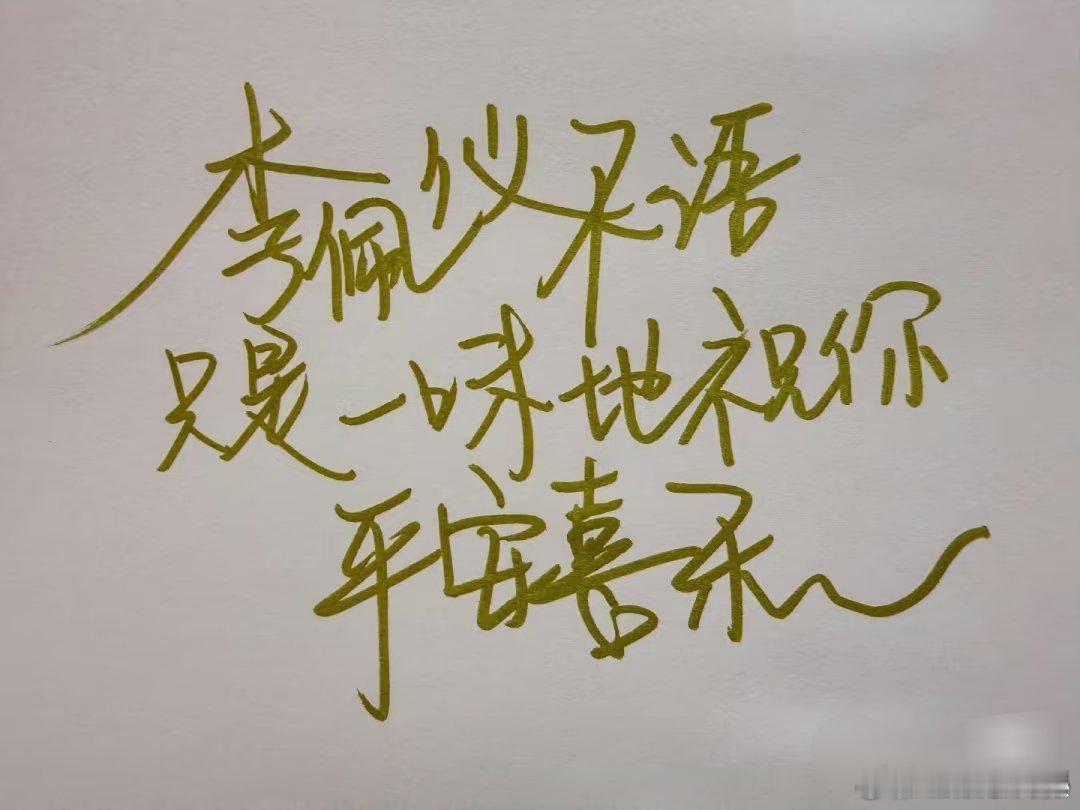 李佩仪不语
只是一味地祝你
平安喜乐